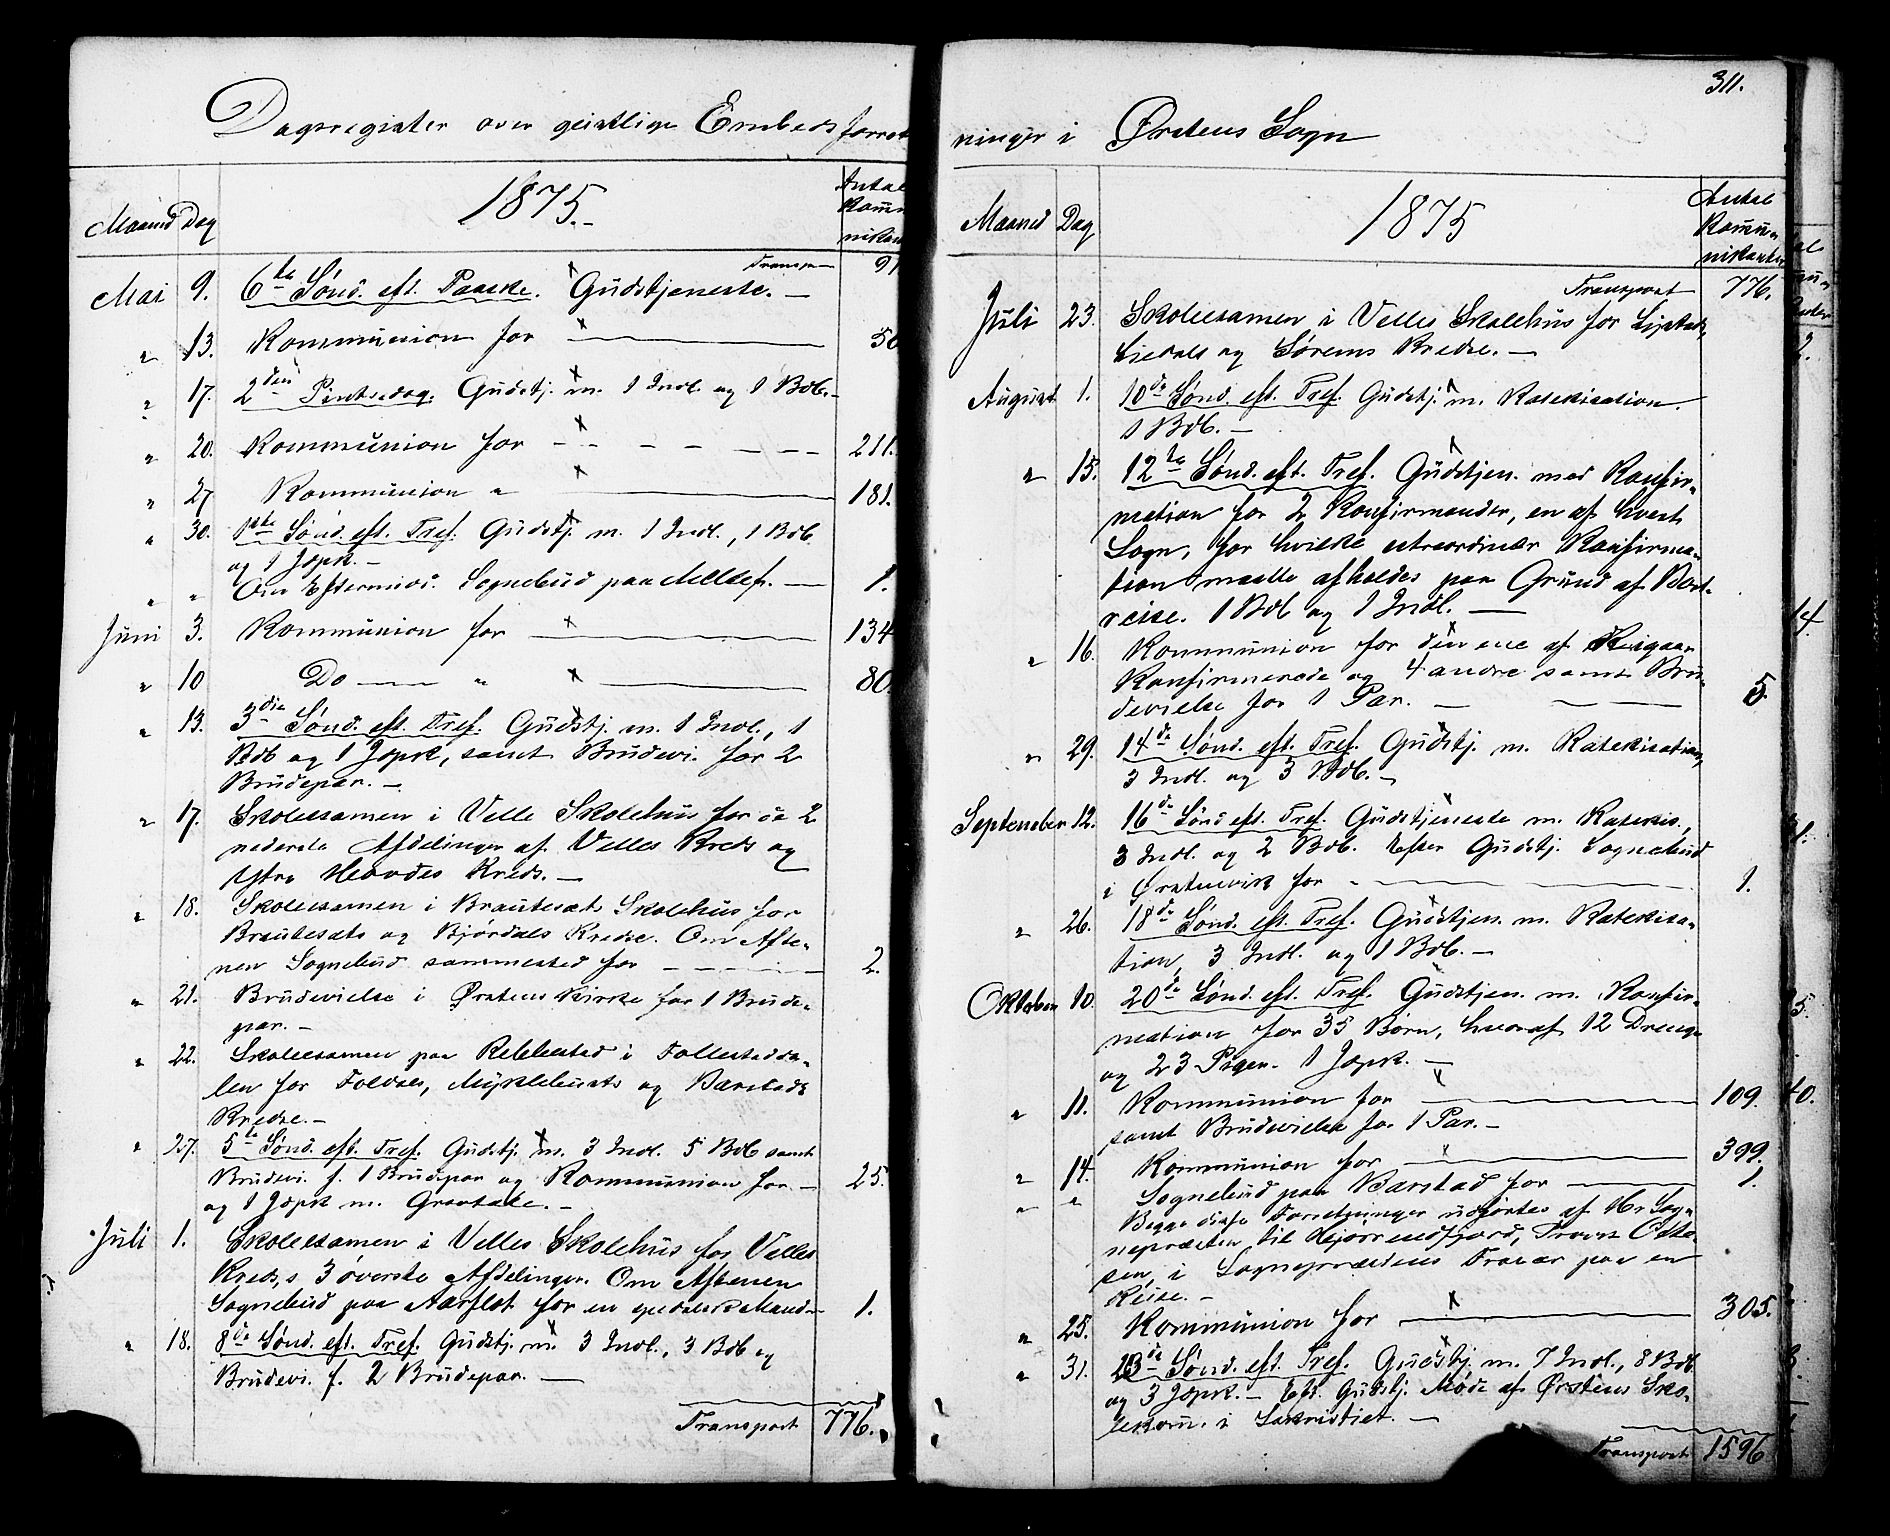 Dagsregister over geistlige Embedsforret
1875.-
Maaned Dag
Antal
Komm
nikan
Transp
91
Mai 9. 6te Sønd. eft. Paaske. Gudstjeneste. —
" 13. Kommunion for — 50
" 17. 2den Pintsedag. Gudstj. m. 1 Indl. og 1 Bdb.-
" 20. Kommunion for - - - - - 211.
" 27 Kommunion " — 181.
" 30. 1ste Sønd. eft. Tref. Gudstj. m. 1 Indl., 1 Bdb.
og 1 Jopk. -
" " Om Eftermid. Sognebud paa Mellef. — 1.
Juni 3. Kommunion for — 134
" 10 Do — " — 80.
" 13. 3die Sønd. eft. Tref. Gudstj. m. 1 Indl., 1
Bdb og 1 Jopk, samt Brudevi. for 2
Brudepar. -
" 17. Skoleexamen i Velle Skolehus for de 2
nederste Afdelinger af Velles Kreds og
Ytre Hovdes Kreds. —
" 18. Skoleexamen i Brautesæts Skolehus for
Brautesæts og Bjørdals Kredse. Om Afte-
nen Sognebud sammested for - - - - 2.
" 21. Brudevielse i Ørstens Kirke for 1 Brude-
par. -
" 22. Skoleexamen paa Rebbestad i Follestadda-
len for Foldals, Myklebusts og Barstads
Kredse. -
" 27. 5te Sønd. eft. Tref. Gudstj. m. 3 Indl. 5 Bdb samt
Brudevi. f. 1 Brudepar og Kommunion for - 25.
og 1 Jopk m. Gravtale. -
Juli 1. Skoleexamen i Velles Skolehus for Velles
Kreds,s 3 øverste Afdelinger. Om Aftenen
Sognebud paa Aarflot for en spedalsk Mand - 1.
" 18. 8de Sønd. eft. Tref. Gudstj. m. 3 Indl., 3 Bdb og
Brudevi. f. 2 Brudepar. —
Transport 776.
311.
ninger i Ørstens Sogn
1875
Maaned Dag
Antal
Kommu-
nikanter
Transport 776.
Juli 23. Skoleexamen i Velles Skolehus for
Liedals og Sørems Kredse. —
August 1. 10de Sønd. eft. Tref. Gudstj. m. Katekisation.
1 Bdb. -
" 15. 12te Sønd. eft. Tref. Gudstjen. med Konfir-
mation for 2 Konfirmander, en af hvert
Sogn, for hvilke extraordinær Konfirma-
tion maatte afholdes paa Grund af Bort-
reise. 1 Bdb og 1 Indl. —
" 16. Kommunion for den ene af de igaar
Konfirmerede og 4 andre samt Bru-
devielse for 1 Par. — 5.
" 29. 14de Sønd. eft. Tref. Gudstj. m. Katekisation,
3 Indl. og 3 Bdb. -
September 12. 16de Sønd eft. Tref. Gudstjeneste m. Katekis.,
3 Indl. og 2 Bdb. Efter Gudstj. Sognebud
i Ørstenvik for - — 1.
" 26. 18de Sønd. eft. Tref. Gudstjen. m. Katekisa-
tion, 3 Indl. og 1 Bdb. -
Oktober 10. 20de Sønd. eft. Tref. Gudstjen. m. Konfir-
mation for 35 Børn, hvoraf 12 Drenge
og 23 Piger. 1 Jopk. —
" 11. Kommunion for — 109.
samt Brudevielse for 1 Par. -
" 14. Kommunion for — 399.
" " Sognebud paa Barstad for — 1.
Begge disse Forretninger udførtes af Hr. Sog-
nepræsten til Hjørrendfjord, Provst Otte-
sen, i Sognepræstens Fravær paa en
Reise. -
" 25. Kommunion for — 305.
" 31. 23de Sønd. eft. Tref. Gudstj. m. 7 Indl., 8 Bdb
og 3 Jopk. - Eft. Gudstj. Møde af Ørstens Sko-
lekom. i Sakristiet. —
Transport 1596